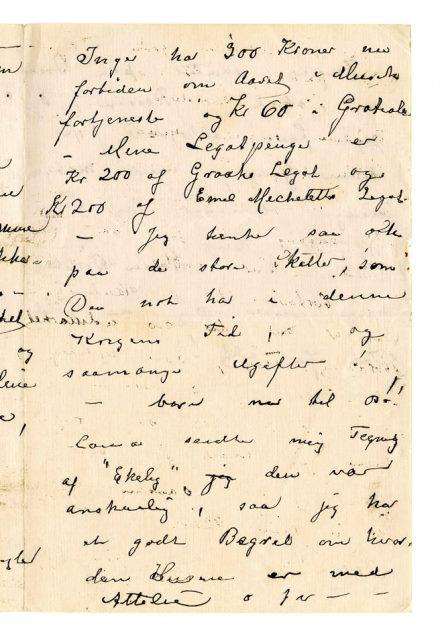 Inger har 300 Kroner nu
fortiden om Aaret i Musik
fortjeneste og Kr 60 i Gratiale
– Mine Legatpenge er
Kr 200 af Legat og
Kr 200 af Emil Legat.
– Jeg tænker saa ofte
paa de store Skatter, som
Du nok har i denne
Krigens Tid, og
saamange Udgifter!
– bare nu til os!!
sendte mig Tegning
af "Ekely", jeg den var
anskuelig, saa jeg har
et godt Begreb om hvor-
dan Husene er med
o s v – –
og